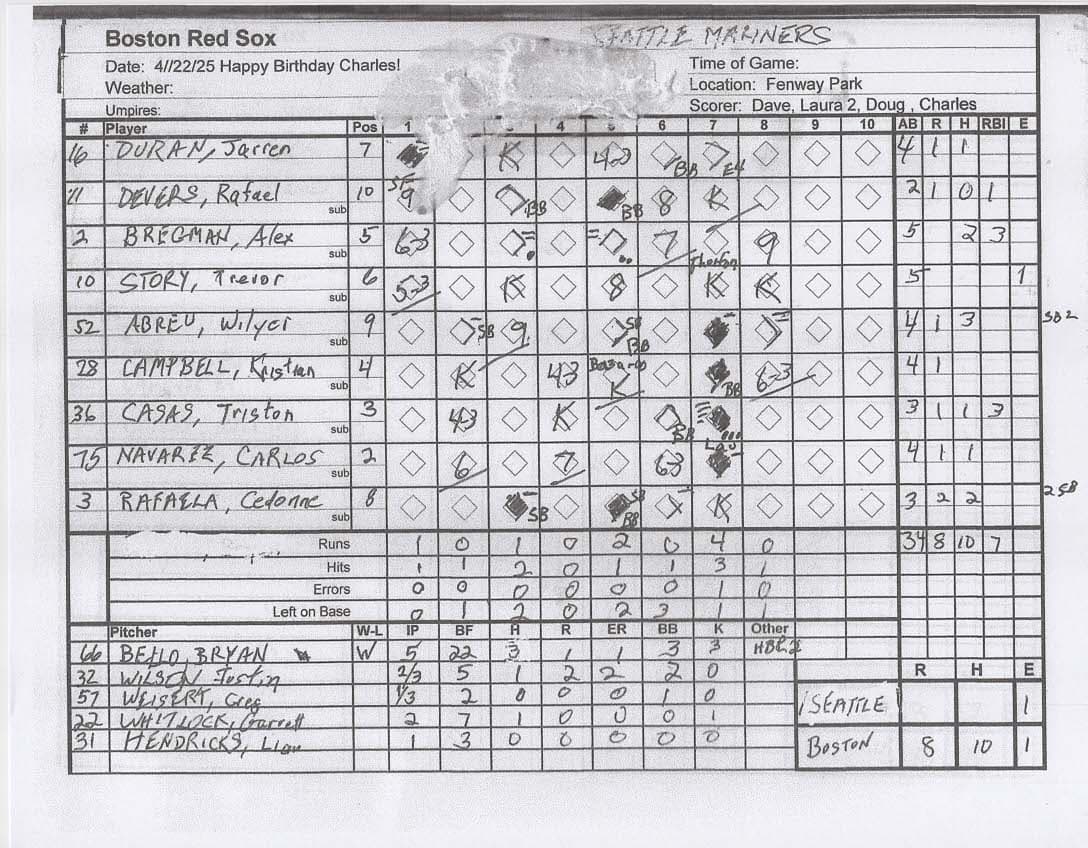 Boston Red Sox SEATTLE MARINERS
Date: 4//22/25 Happy Birthday Charles! Time of Game:
Weather: Location: Fenway Park
Umpires: Scorer: Dave, Laura 2, Doug , Charles
# Player Pos 1 3 4 5 6 7 8 9 10 AB R H RBI E
16 DURAN, Jarren 7 K 4-3 BB E4 4 1 1
11 DEVERS, Rafael sub 10 SF9 BB BB 8 K 2 1 0 1
2 BREGMAN, Alex sub 5 6-3 7 9 5 2 3
10 STORY, Trevor sub 6 5-3 K 8 Thornton K K 5 1
52 ABREU, Wilyer sub 9 SB 9 SB BB 4 1 3 SB 2
28 CAMPBELL, Kristian sub 4 K 43 Bazardo K BB 6-3 4 1
36 CASAS, Triston sub 3 43 K BB 3 1 1 3
75 NAVAREZ, CARLOS sub 2 6 7 63 4 1 1
3 RAFAELA, Cedonne sub 8 SB SB BB K 3 2 2 2 SB
Runs 1 0 1 0 2 0 4 0 34 8 10 7
Hits 1 1 2 0 1 1 3 1
Errors 0 0 0 0 0 0 1 0
Left on Base 0 1 2 0 2 3 1 1
Pitcher W-L IP BF H R ER BB K Other
66 BELLO, BRYAN W 5 22 3 1 1 3 3
32 WILSON Justin 2/3 5 1 2 2 2 0
57 WEISERT, Greg 1/3 2 0 0 0 1 0
22 WHITLOCK, Garrett 2 7 1 0 0 0 1
31 HENDRICKS, Liam 1 3 0 0 0 0 0
R H E
SEATTLE 1
BOSTON 8 10 1